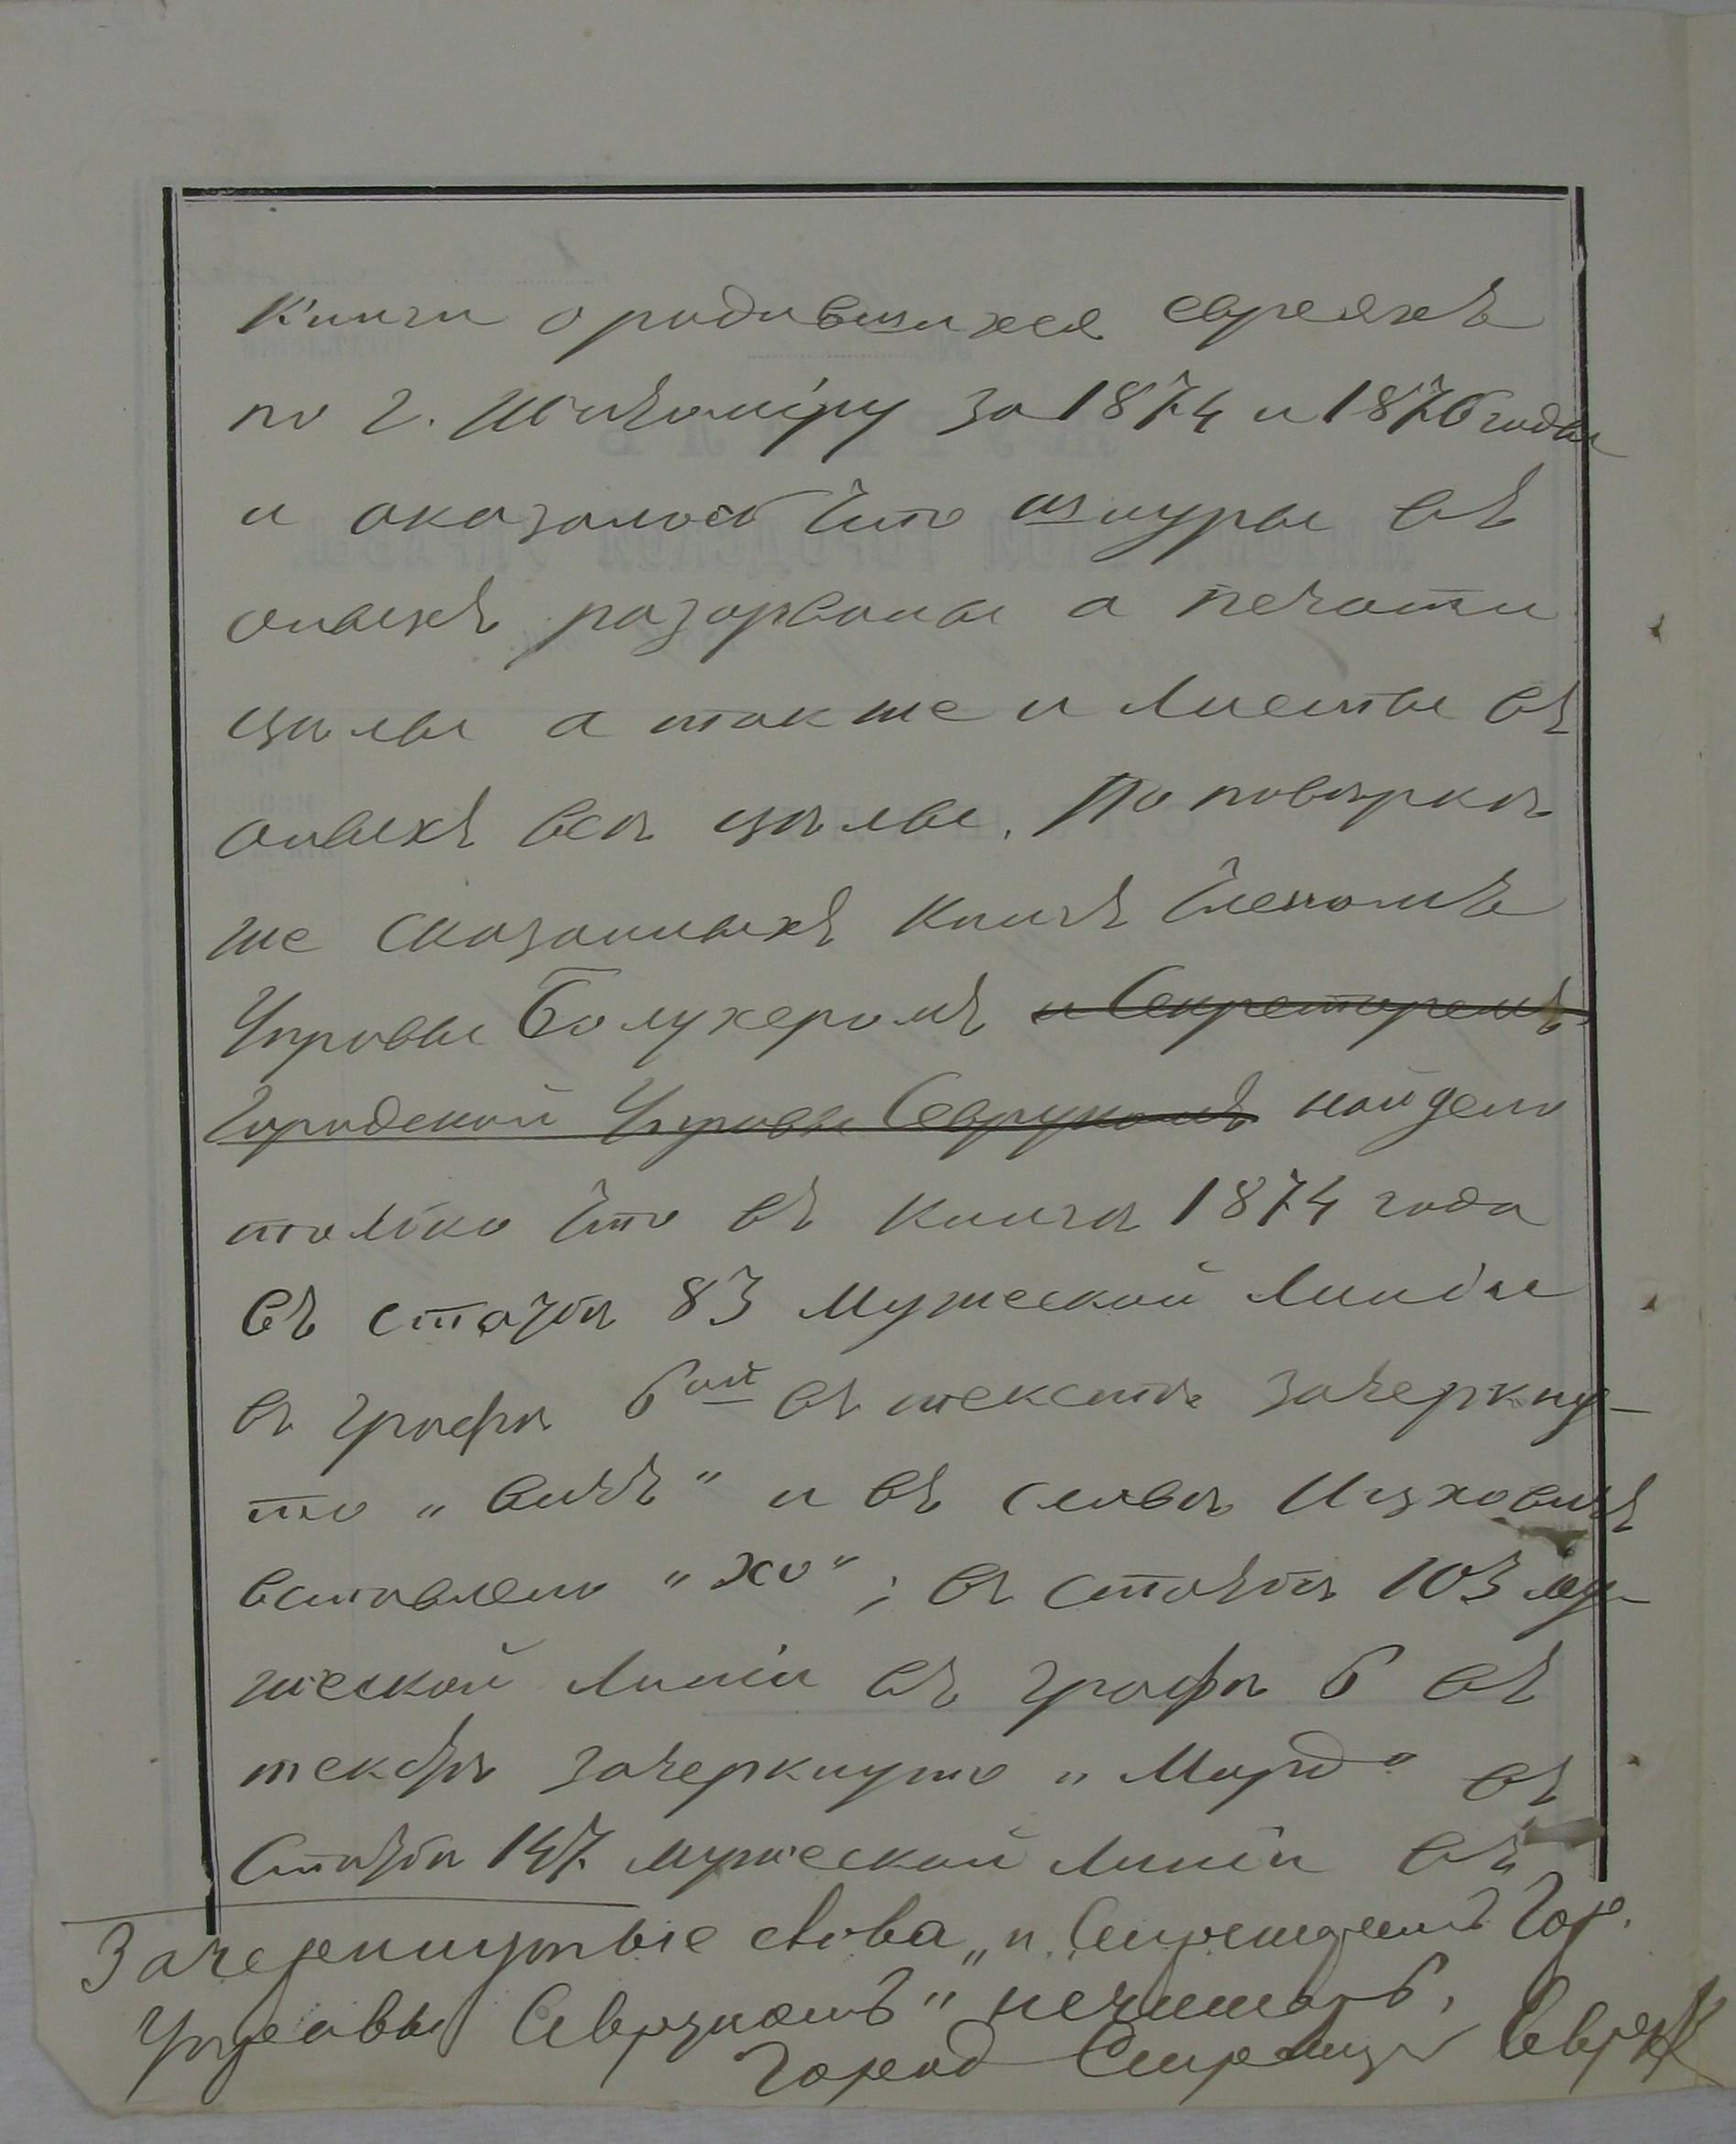 книги о родившихся евреяхъ
по г. Житоміру за 1874 и 1876 годы
и оказалось что шнуры въ
оныхъ разорваны а печати
цѣлы а так же и листы въ
оныхъ всѣ цѣлы. По повѣркѣ
же сказанныхъ книгъ Членомъ
Управы Балухеромъ и Секретаремъ
Городской Управы Севрукомъ найдено
только что въ книгѣ 1874 года
въ статьѣ 83 мужеской линіи
въ графѣ 6ой въ текстѣ зачеркну-
то „вичъ“ и въ словѣ Ицховичъ
вставлено „хо“; въ статьѣ 103 му-
жеской линіи въ графѣ 6 въ
текстѣ зачеркнуто „Морд“ въ
статьѣ 147 мужеской линіи въ
Зачеркнутые слова „и Секретаремъ Гор.
Управы Севрукомъ“ нечитать.
Город Секретарь Севрук